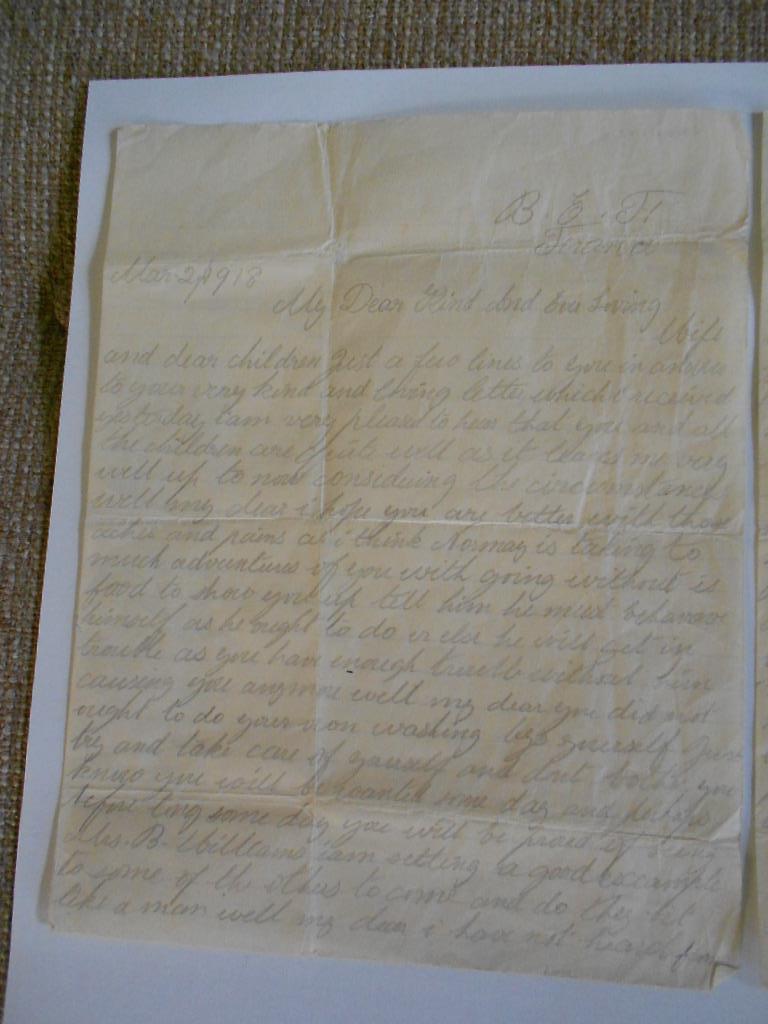 B. E. F.
France
Mar 2/1918
My Dear Kind And Ever Loving
Wife
and dear children Just a few lines to you in answer
to your very kind and loving letter which i received
yesterday iam very pleased to hear that you and all
the children are quite well as it leaves me very
well up to now considering the circumstances
well my dear i hope you are better with those
aches and pains as i think is taking to
much advantures of you with going without is
food to show you up tell him he must behavave
himself as he ought to do or else he will get in
trouble as you have enough trouble without him
causeng you anymore well my dear you did not
ought to do your own washing by yourself Just
try and take care of yourself and dont bother you
know you will be wanted some day and perhaps
before long some day you will be proud of being
Mrs. B. Williams iam setting a good excample
to some of the others to come and do they bit
like a man well my dear i have not heard from